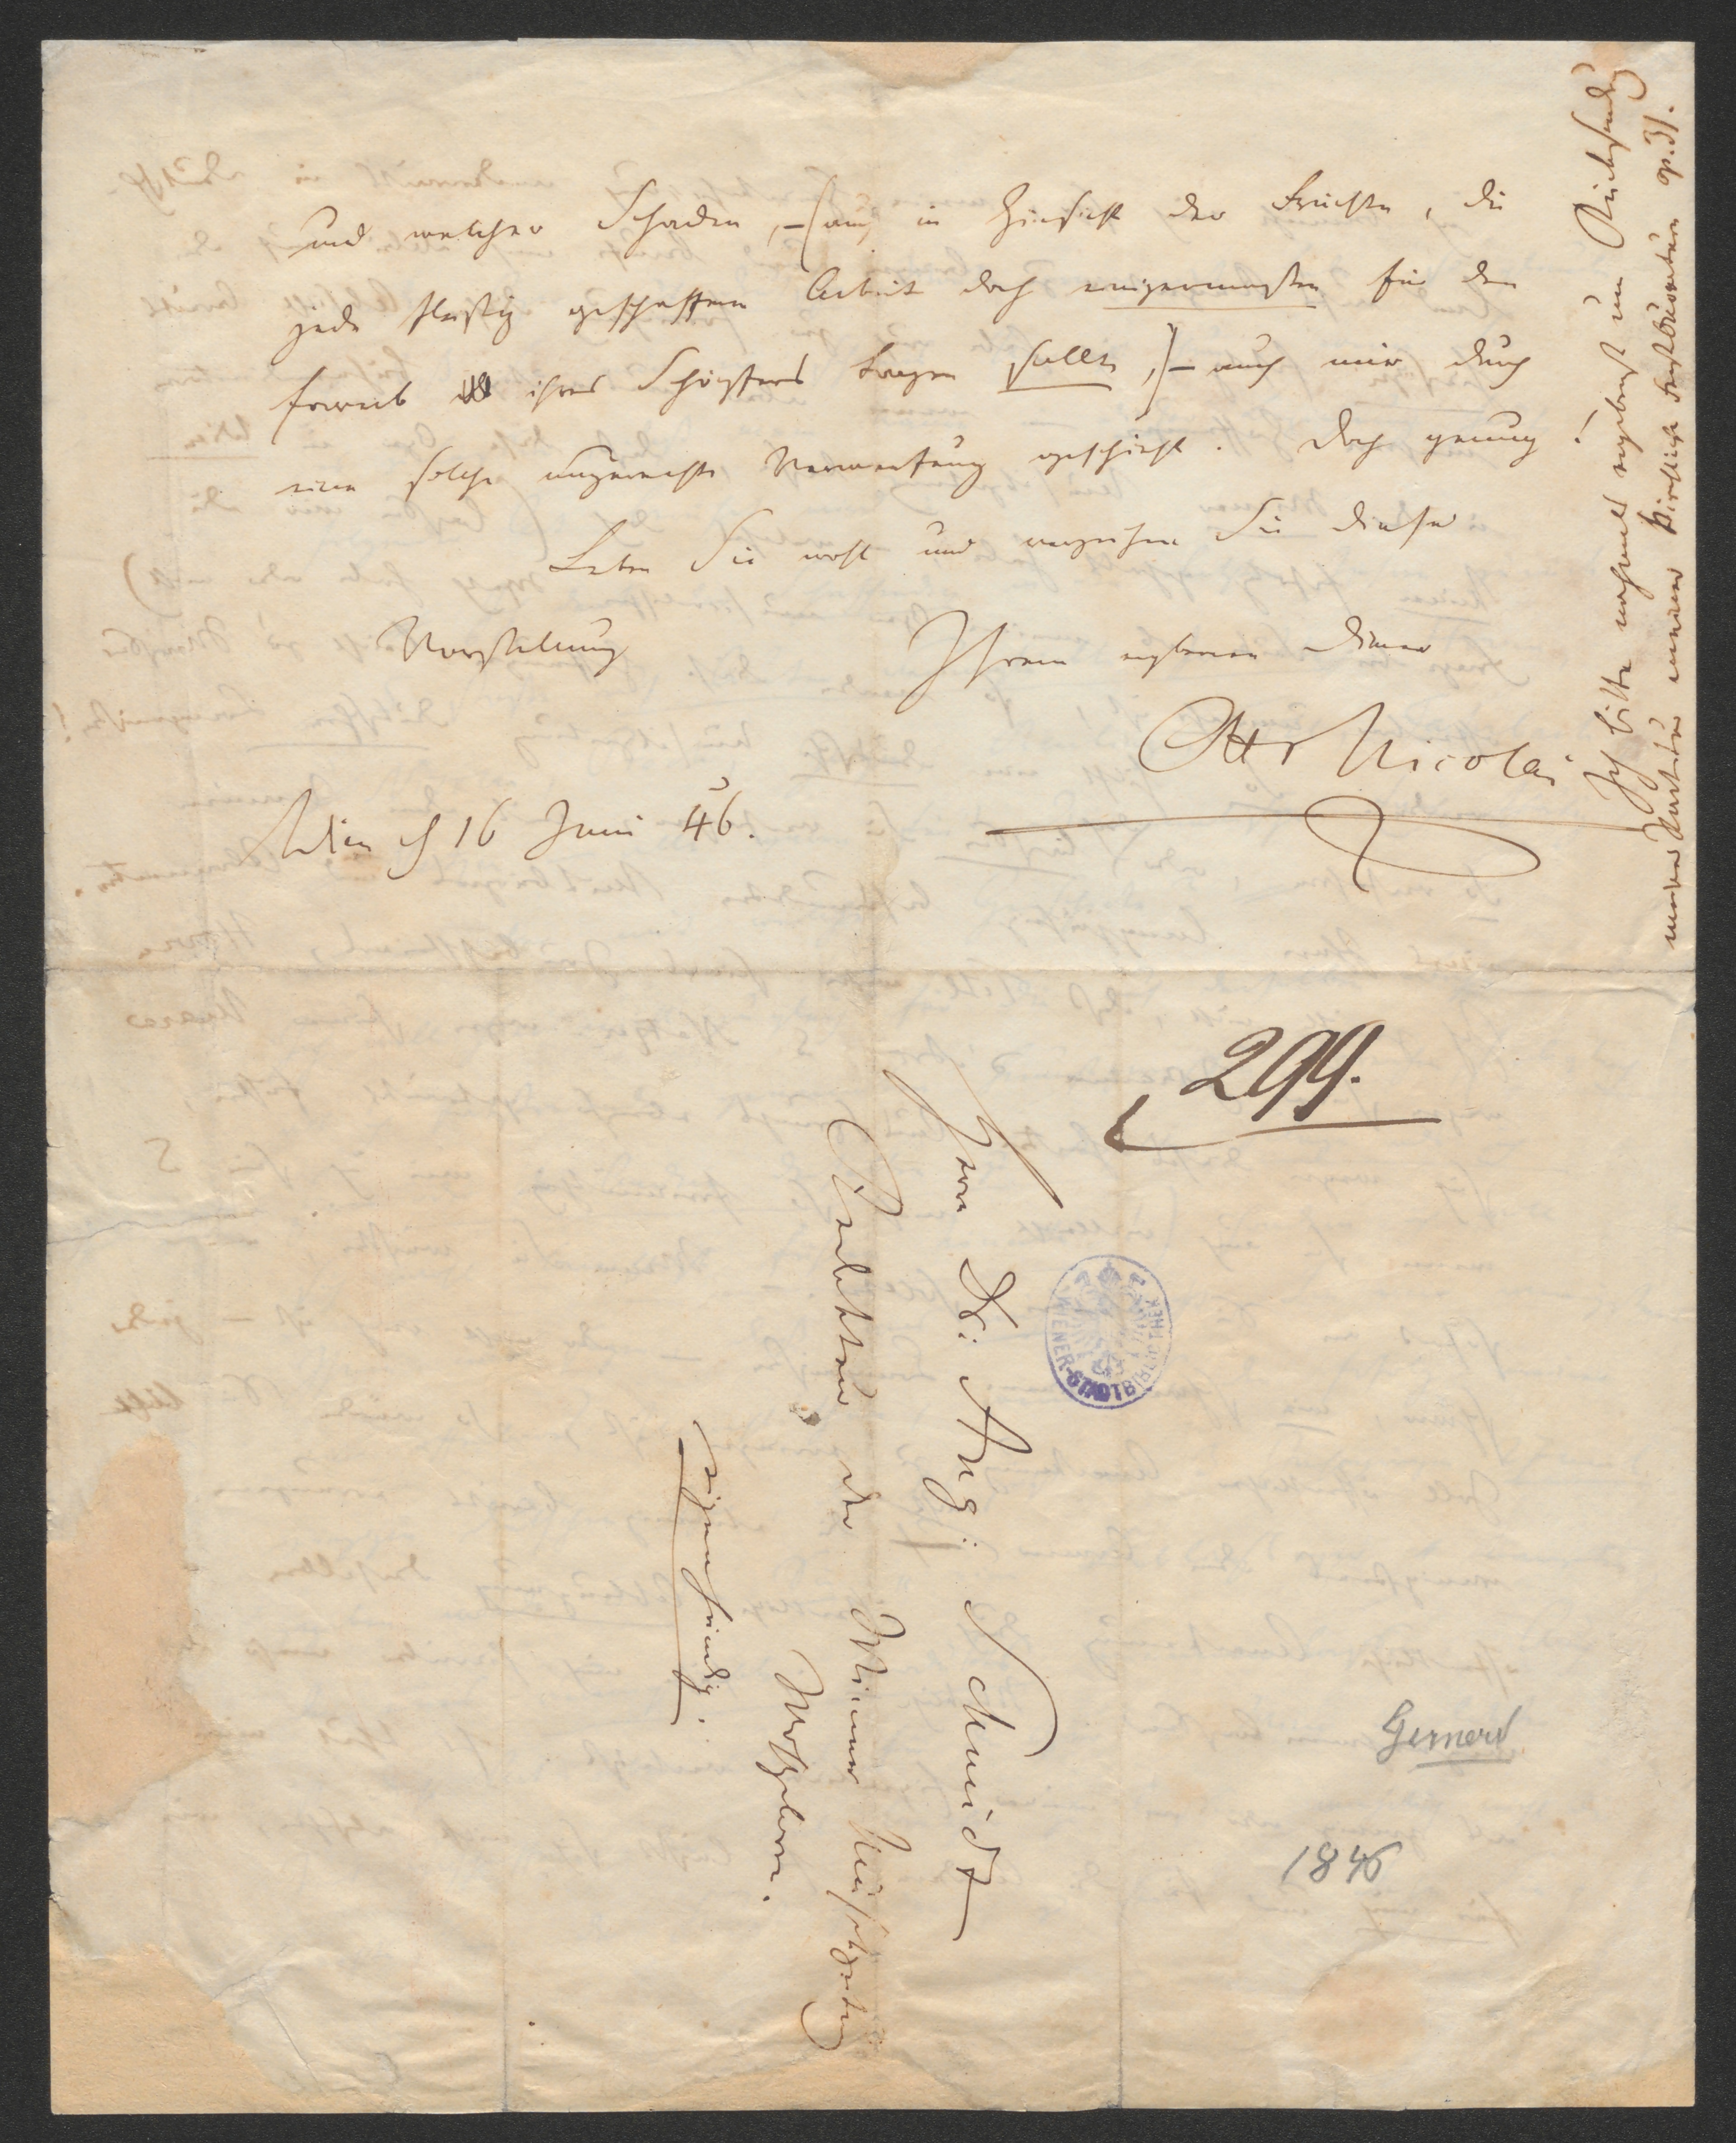 und welcher Schaden,-(auch in Hinsicht der Früchte, die
jede fleißig geschaffene Arbeit doch einigermaßen für den
Erwerb ihres Schöpfers tragen sollte,)- auch mir durch
eine solche ungerechte Verwerfung geschieht. Doch genug!
Leben Sie wohl und verzeihen Sie diese
Vorstellung
Ihrem ergebenen Diener
Otto Nicolai
Wien d 16 Juni 46.
Ich bitte nochmals ergebenst um Rücksendung
meiner Partitur meiner Kirchlichen Festouvertüre op. 31.
299.
Herrn Dr. Aug: Schmidt
Redakteur der Wiener Musikzeitung
Wohlgeboren.
eigenhändig.
WIENER-STADTBIBLIOTHEK
1846